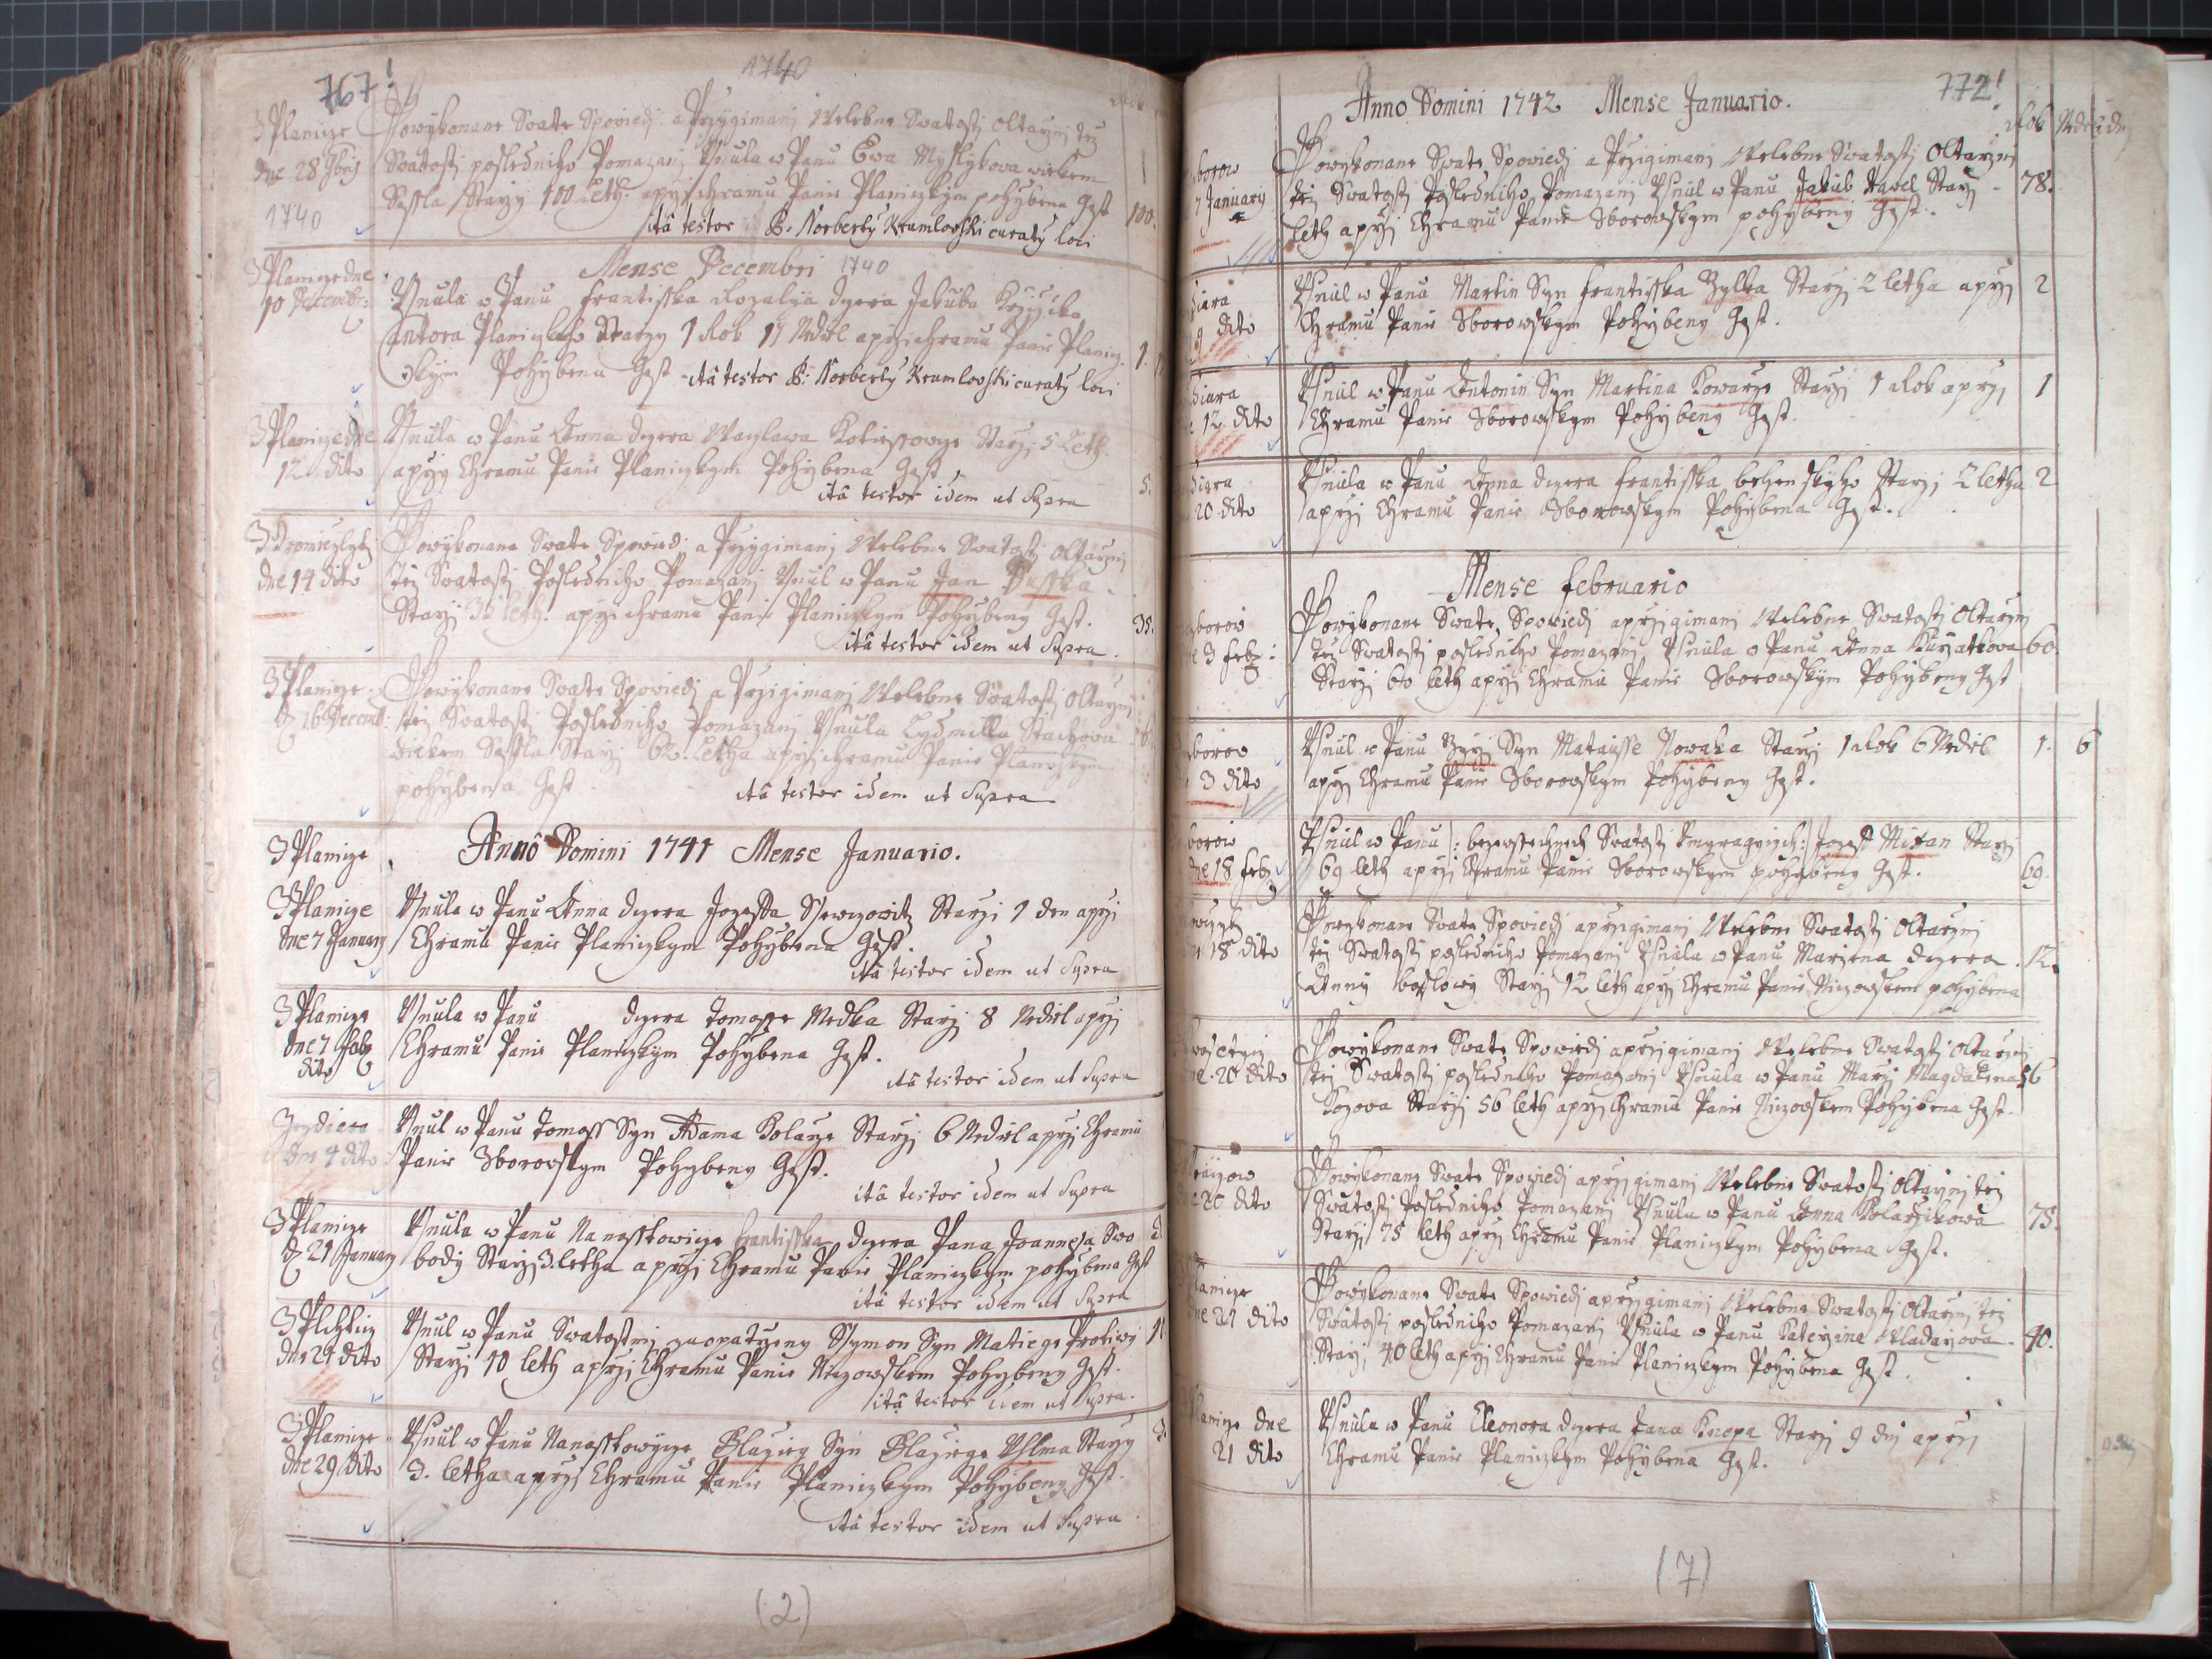 767!
1740
Z Planicze
dne 28 9bris
1740
Powykonane Swate Spowiedj a Przygimanj Welebne Swatostj Oltarznj tez
Swatostj posledniho Pomazanj Usnula w Panu Ewa Myslykova wiekem
Sessla Starzy 100 leth. a przj chramu Panie Planiczkym pohrbena Gest
100.
ita testor P. Norbertq Krumlovskj curatq loci
Mense Decembri 1740
Z Planicze dne
10 Decembr:
Usnula w Panu Frantisska Rozalya dczera Jakuba
Cantora Planiczkeho Starzy 1 Rok 11 Nediel a przj chramu Panie Planicz
1.
skym Pohrbena Gest ita testor P: Norbertq Krumlovskj curatq loci
Z Planicze dne
12 dito
Usnula w Panu Anna dczera Waczlawa Starzj 5 leth
a przj Chramu Panie Planiczkym Pohrbena Gest
5.
ita testor idem ut Supra
dne 14 dito
Powykonane Swate Spowiedj a Przygimanj Welebne Swatostj Oltarznj
tez Swatostj Posledniho Pomazanj Usnul w Panu Jan Dusska
Starzj 35 leth. a przj chramu Panie Planiczkym Pohrbeny Gest.
35.
ita testor idem ut Supra.
Z Planicze
d 16 Decemb:
Powykonane Swate Spowiedj a Przigimanj Welebne Swatostj Oltarznj
tez Swatostj Posledniho Pomazanj Usnula Lydmilla Stachova
wiekem Sessla Starzj letha a przj chramu Panie Planiczkym
pohrbena Gest
ita testor idem ut Supra
Z Planicze
Anno Domini 1741 Mense Januario.
Z Planicze
dne 7 January
Usnula w Panu Anna dczera Jozeffa Starzj 1 den a przj
Chramu Panie Planiczkym Pohrbena Gest.
ita testor idem ut Supra
Z Planicze
dne 7
dito
Usnula w Panu dczera Tomasse Medka Starzj 8 Nediel a przj
Chramu Panie Planiczkym Pohrbena Gest.
ita testor idem ut Supra
dito
Usnul w Panu Tomass Syn Adama Kolarze Starzj 6 Nediel a przj Chramu
Panie Zborovskym Pohrbeny Gest.
ita testor idem ut Supra
Z Planicze
d 21 January
Usnula w Panu Nanosstowicze Frantisska dczera Pana Joannesa Swo
body Starzj 3. letha a przj Chramu Panie Planiczkym pohrbena Gest
ita testor idem ut Supra
dne 21 dito
Usnul w Panu Swatostmj zaopatrzeny Ssymon Syn Matiege Protiwy
Starzj 10 leth a przj Chramu Panie Niczowskem Pohrbeny Gest.
ita testor idem ut Supra.
Z Planicze
dne 29 dito
Usnul w Panu Nanosstowicze Blazieg Syn Blaziege Starzy
3. letha a przj Chramu Panie Planiczkym Pohrbeny Gest.
ita testor idem ut Supra.
(2)
772!
Anno Domini 1742 Mense Januario.
Rok Nedel dnj
borow
7 January
Powykonane Swate Spowiedj a Przigimanj Welebne Swatostj Oltarznj
tez Swatostj Posledniho Pomazanj Usnul w Panu Jakub Hawel Starzj
78.
leth a przj Chramu Panie Sborowskym pohrbeny Gest.
diara
9 dito
Usnul w Panu Martin Syn Frantisska Bylka Starzj 2 letha a przj
2
Chramu Panie Sborowskym Pohrbeny Gest.
diara
12 dito
Usnul w Panu Antonin Syn Martina Kowarze Starzj 1 Rok a przj
1
Chramu Panie Sborowskym Pohrbeny Gest.
diara
20 dito
Usnula w Panu Anna dczera Frantisska Starzj 2 letha
2
a przj Chramu Panie Sborowskym Pohrbena Gest.
Mense Februario
borow
3 Feb:
Powykonane Swate Spowiedj a przigimanj Welebne Swatostj Oltarznj
tez Swatostj posledniho Pomazanj Usnula w Panu Anna Kurzatkowa
60.
Starzj 60 leth a przj Chramu Panie Sborowskym Pohrbeny Gest
borow
3 dito
Usnul w Panu Syn Matausse Nowaka Starzj 1 Rok 6 Nediel
1. 6
a przj Chramu Panie Sborowskym Pohrbeny Gest.
borow
dne 18 Feb
Usnul w Panu |: bezewssechnech Swatostj :| Jozeff Starzj
69 leth a przj Chramu Panie Sborowskym pohrbeny Gest.
69.
18 dito
Powykonane Swate Spowiedj a przigimanj Welebne Swatostj Oltarznj
tez Swatostj posledniho Pomazanj Usnula w Panu Marzena dczera
12.
Anny Starzj 12 leth a przj Chramu Panie Niczowskem pohrbena
20 dito
Powykonane Swate Spowiedj a przigimanj Welebne Swatostj Oltarznj
tez Swatostj posledniho Pomazanj Usnula w Panu Marzj Magdalena
56
Kozova Starzj 56 leth a przj Chramu Panie Niczowskem Pohrbena Gest.
20 dito
Powykonane Swate Spowiedj a przigimanj Welebne Swatostj Oltarznj tez
Swatostj Posledniho Pomazanj Usnula w Panu Anna Kolarzikowa
75.
Starzj 75 leth a przj Chramu Panie Planiczkym Pohrbena Gest.
lanicze
dne 21 dito
Powykonane Swate Spowiedj a przigimanj Welebne Swatostj Oltarznj tez
Swatostj posledniho Pomazanj Usnula w Panu Katerzina Wladarzova
40.
Starzj 40 leth a przj Chramu Panie Planiczkym Pohrbena Gest.
lanicze dne
21 dito
Usnula w Panu Eleonora dczera Jana Knopa Starzj 9 dnj a przj
Chramu Panie Planiczkym Pohrbena Gest.
(7)